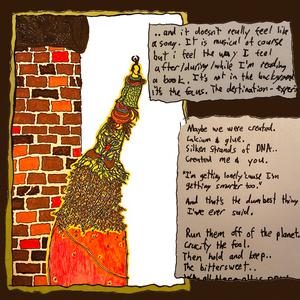 ..and it doesn't really feel like
a song. It is musical of course
but i feel the way I feel
after/during/while I'm reading
a book. It's not in the background
it's the focus. The destination - experien
Maybe we were created.
Calcium & glue.
Silken strands of DNA..
Created me & you.
"I'm getting lonely 'cause I'm
getting smarter too."
And that's the dumbest thing
I've ever said.
Run them off of the planet.
Crucify the fool.
Then hold and keep..
The bittersweet..